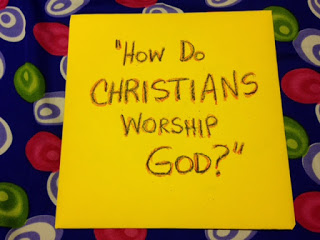 "How Do
CHRISTIANS
WORSHIP
GOD?"